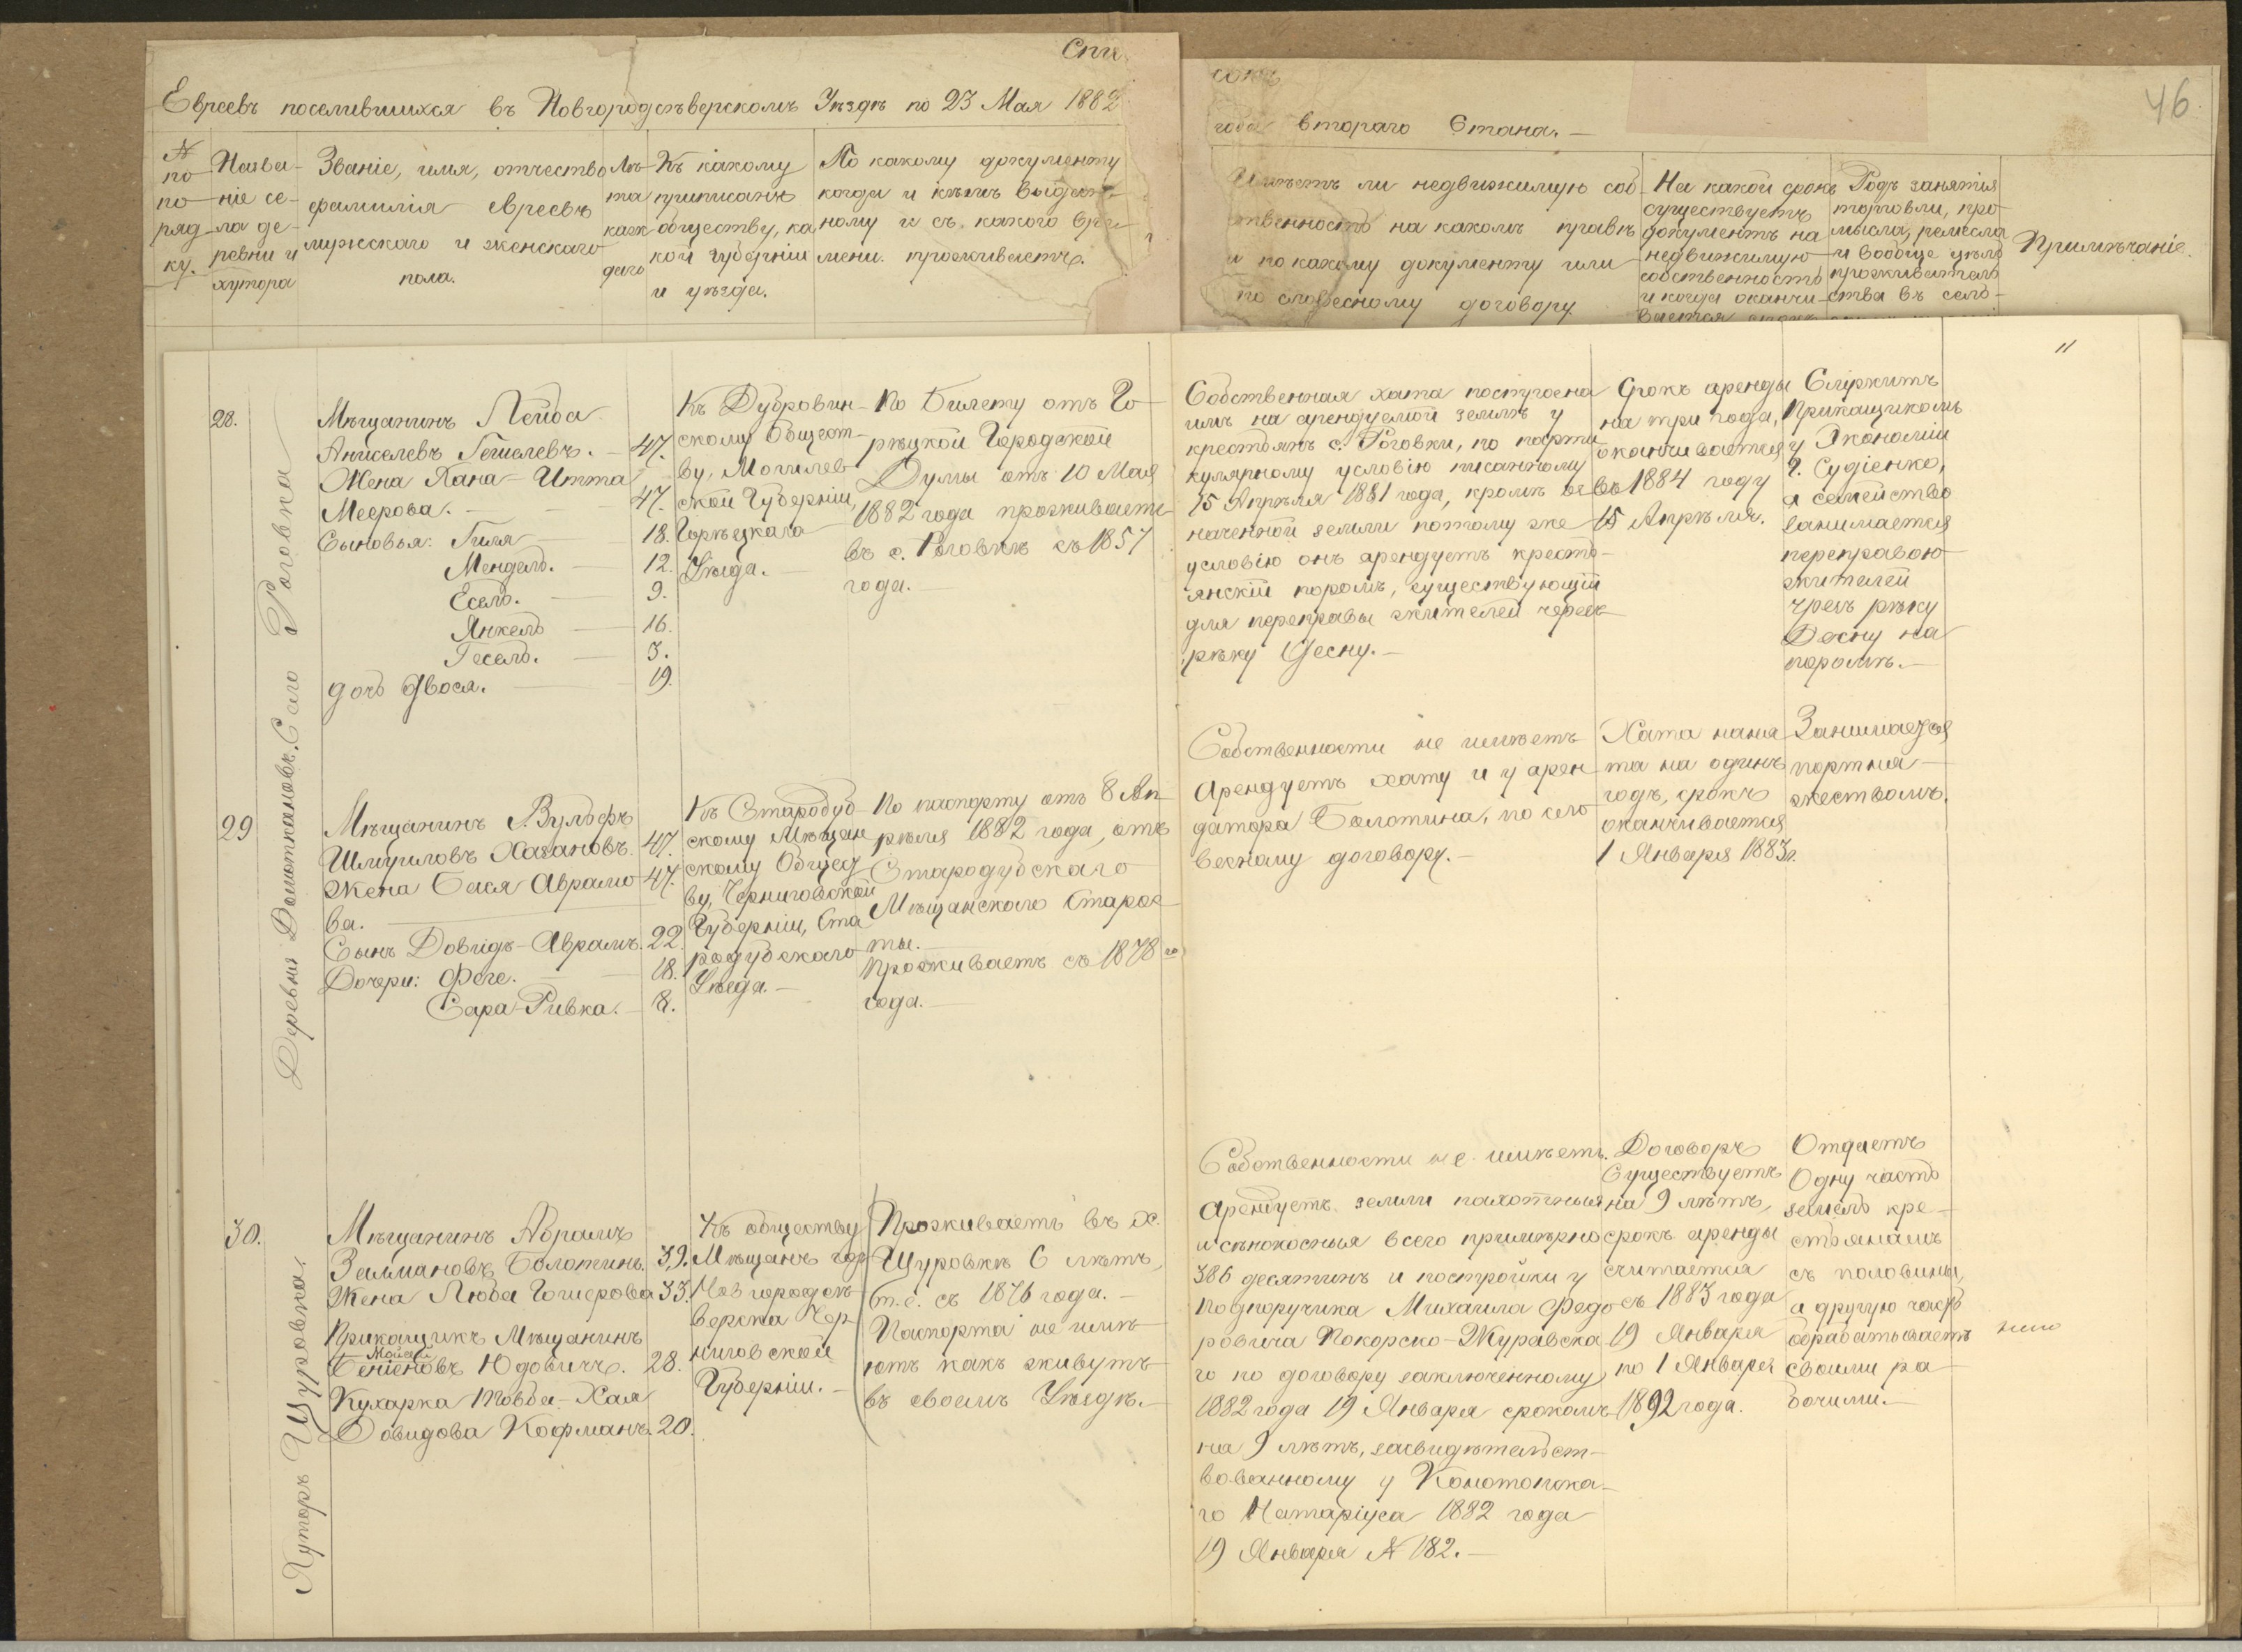 Спи
сокъ
46
Евреевъ поселившихся въ Новгородсѣверскомъ Уѣздѣ по 23 Мая 1882
года втораго Стана.
№ по поряд ку.
Назва-
ніе се-
ла де-
ревни и
хутора
Званіе, имя, отчество
фамилія евреевъ
мужскаго и женскаго
пола.
Лѣ-
та
кажд
даго
Къ какому
приписанъ
обществу, ка
кой губерніи
и уѣзда.
По какому документу
когда и кѣмъ выдан-
ному и съ какого вре-
мени проживаетъ.
Имѣетъ ли недвижимую соб-
ственность на какомъ правѣ
и по какому документу или
по словесному договору
На какой срокъ
существуетъ
документъ на
недвижимую
собственность
и когда оканчи-
вается срокъ
Родъ занятія
торговли, про-
мысла, ремесла
и вообще цѣль
проживатель
ства въ селѣ-
Примѣчаніе.
11
Деревня Домоткановъ. Село Роговка
28.
Мѣщанинъ Лейба
Аншелевъ Гешелевъ. 47.
Жена Хана-Итта
Меерова. 47.
Сыновья: Гиля 18.
Мендель. 12.
Есель. 9.
Янкель 16.
Гесель. 3.
дочь Двося. 19.
Къ Дубровин-
скому Общест-
ву, Могилев
ской Губерніи,
Горѣцкаго
Уѣзда.
По Билету отъ Го-
рѣцкой Городской
Думы отъ 10 Мая
1882 года проживаетъ
въ с. Роговкѣ съ 1857
года.
Собственная хата построена
имъ на арендуемой землѣ у
крестьянъ с. Роговки, по парти
кулярному условію писанному
15 Апрѣля 1881 года, кромѣ оз
наченной земли потому же
условію онъ арендуетъ кресть-
янскій поромъ, существующій
для переправы жителей черезъ
рѣку Десну.
Срокъ аренды
на три года,
оканчивается
въ 1884 году
15 Апрѣля.
Служитъ
Прикащикомъ
у Экономіи
Г. Судіенко,
а семейство
занимается
переправою
жителей
чрезъ рѣку
Десну на
поромѣ.
29
Мѣщанинъ Вульфъ
Шмуиловъ Хазановъ. 47.
Жена Бася Аврамо 47.
ва.
Сынъ Довидъ-Аврамъ. 22.
Дочери: Феге. 18.
Сара-Ривка. 8.
Къ Стародуб-
скому Мѣщан
скому Общест
ву, Черниговской
Губерніи, Ста
родубскаго
Уѣзда.
По паспорту отъ 8 Ап
рѣля 1882 года, отъ
Стародубскаго
Мѣщанскаго Старос
ты.
Проживаетъ съ 1878 го
года.
Собственности не имѣетъ
Арендуетъ хату и у арен
датора Болотина, по сло
весному договору.
Хата наня
та на одинъ
годъ, срокъ
оканчивается
1 Января 1883 г.
Занимается
портня-
жествомъ.
Хуторъ Щуровка.
30.
Мѣщанинъ Абрамъ
Залмановъ Болотинъ. 39.
Жена Люба Гошерова 33.
Прикащикъ Мѣщанинъ
Мойсей
Беніеновъ Юдовичъ. 28.
Кухарка Товба-Хая
Довидова Кофманъ. 20.
Къ обществу
Мѣщанъ гор
Новгородсѣ
верска Чер
ниговской
Губерніи.
Проживаетъ въ х.
Щуровкѣ 6 лѣтъ,
т.е. съ 1876 года.
Паспорта не имѣ
ютъ какъ живутъ
въ своемъ Уѣздѣ.
Собственности не имѣетъ.
Арендуетъ земли пахотныя
и сѣнокосныя всего примѣрно
386 десятинъ и постройки у
подпоручика Михаила Федо
ровича Покорско-Журавска
го по договору заключенному
1882 года 19 Января срокомъ
на 9 лѣтъ, засвидѣтельст-
вованному у Конотопска-
го Натаріуса 1882 года
19 Января № 182.
Договоръ
Существуетъ
на 9 лѣтъ,
срокъ аренды
считается
съ 1883 года
19 Января
по 1 Января
1892 года.
Отдаетъ
Одну часть
земель кре-
стьянамъ
съ половины,
а другую часть
обрабатываетъ
своими ра-
бочими.